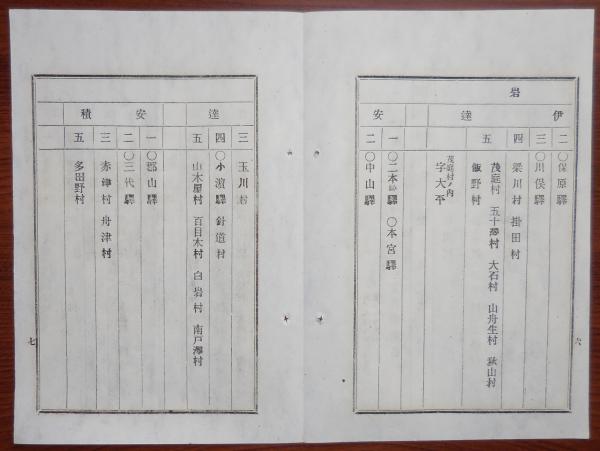 岩
伊達
二 〇保原驛
三 〇川俣驛
四 梁川村 掛田村
五 茂庭村 五十澤村 大石村 山舟生村 秋山村
飯野村
茂庭村ノ内
字大平
安
一 〇二本松驛 〇本宮驛
二 〇中山驛
六
達
三 玉川村
四 〇小濵驛 針道村
五 山木屋村 百目木村 白岩村 南戸澤村
安積
一 〇郡山驛
二 〇三代驛
三 赤津村 舟津村
五 多田野村
七